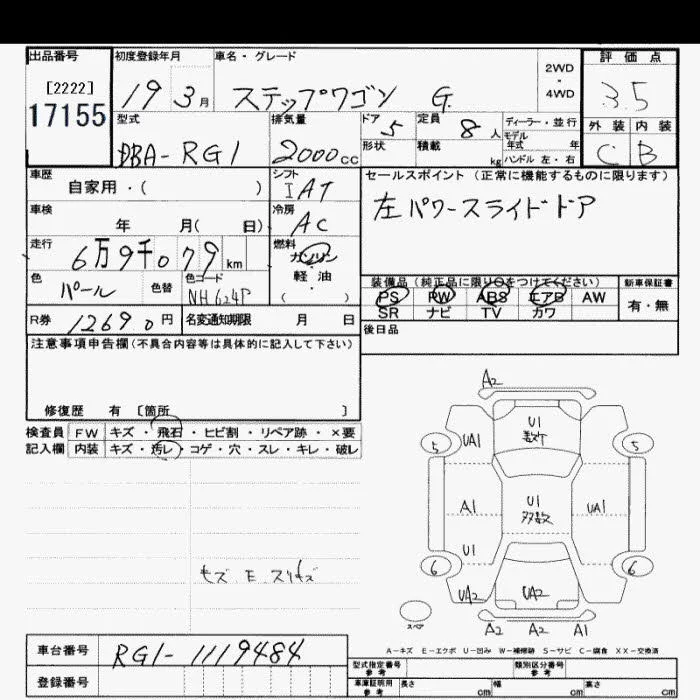 出品番号 初度登録年月 車名・グレード 2WD・4WD 評価点
[2222]
17155 19 3月 ステップワゴン G. 3.5
型式 排気量 ドア 5 定員 8人 ディーラー・並行 外装 内装
DBA-RG1 2000cc 形状 積載 kg モデル年式 年 C B
ハンドル 左・右
車歴 シフト セールスポイント (正常に機能するものに限ります)
自家用・( ) IAT 左パワースライドドア
車検 冷房
年 月( 日) AC
走行 燃料
6万9千079km ガソリン
軽・油
( )
色 色替 色コード 装備品 (純正品に限り○をつけてください) 新車保証書
パール NH624P PS PW ABS エアB AW 有・無
SR ナビ TV カワ
R券 12690円 名変通知期限 月 日 後日品
注意事項申告欄(不具合内容等は具体的に記入して下さい)
修復歴 有 [箇所 ]
検査員 FW キズ・飛石・ヒビ割・リペア跡・×要
記入欄 内装 キズ・汚レ・コゲ・穴・スレ・キレ・破レ
A2
5 UA1 U1 5
A1 U1 多数 UA1
U1
6 UA2 UA2 6
スペア A2 A2 A1
A-キズ E-エクボ U-凹み W-補修跡 S-サビ C-腐食 XX-交換済
車台番号 RG1-1119484
登録番号
型式指定番号 参考 類別区分番号 参考
車庫証明用 参考 長さ cm 幅 cm 高さ cm